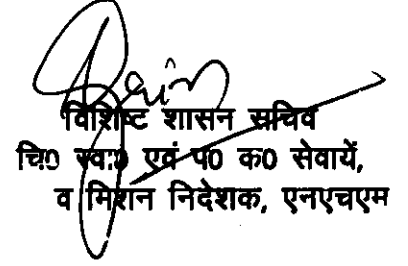 विशिष्ट शासन सचिव
चि0 स्वा0 एवं प0 क0 सेवायें,
व मिशन निदेशक, एनएचएम